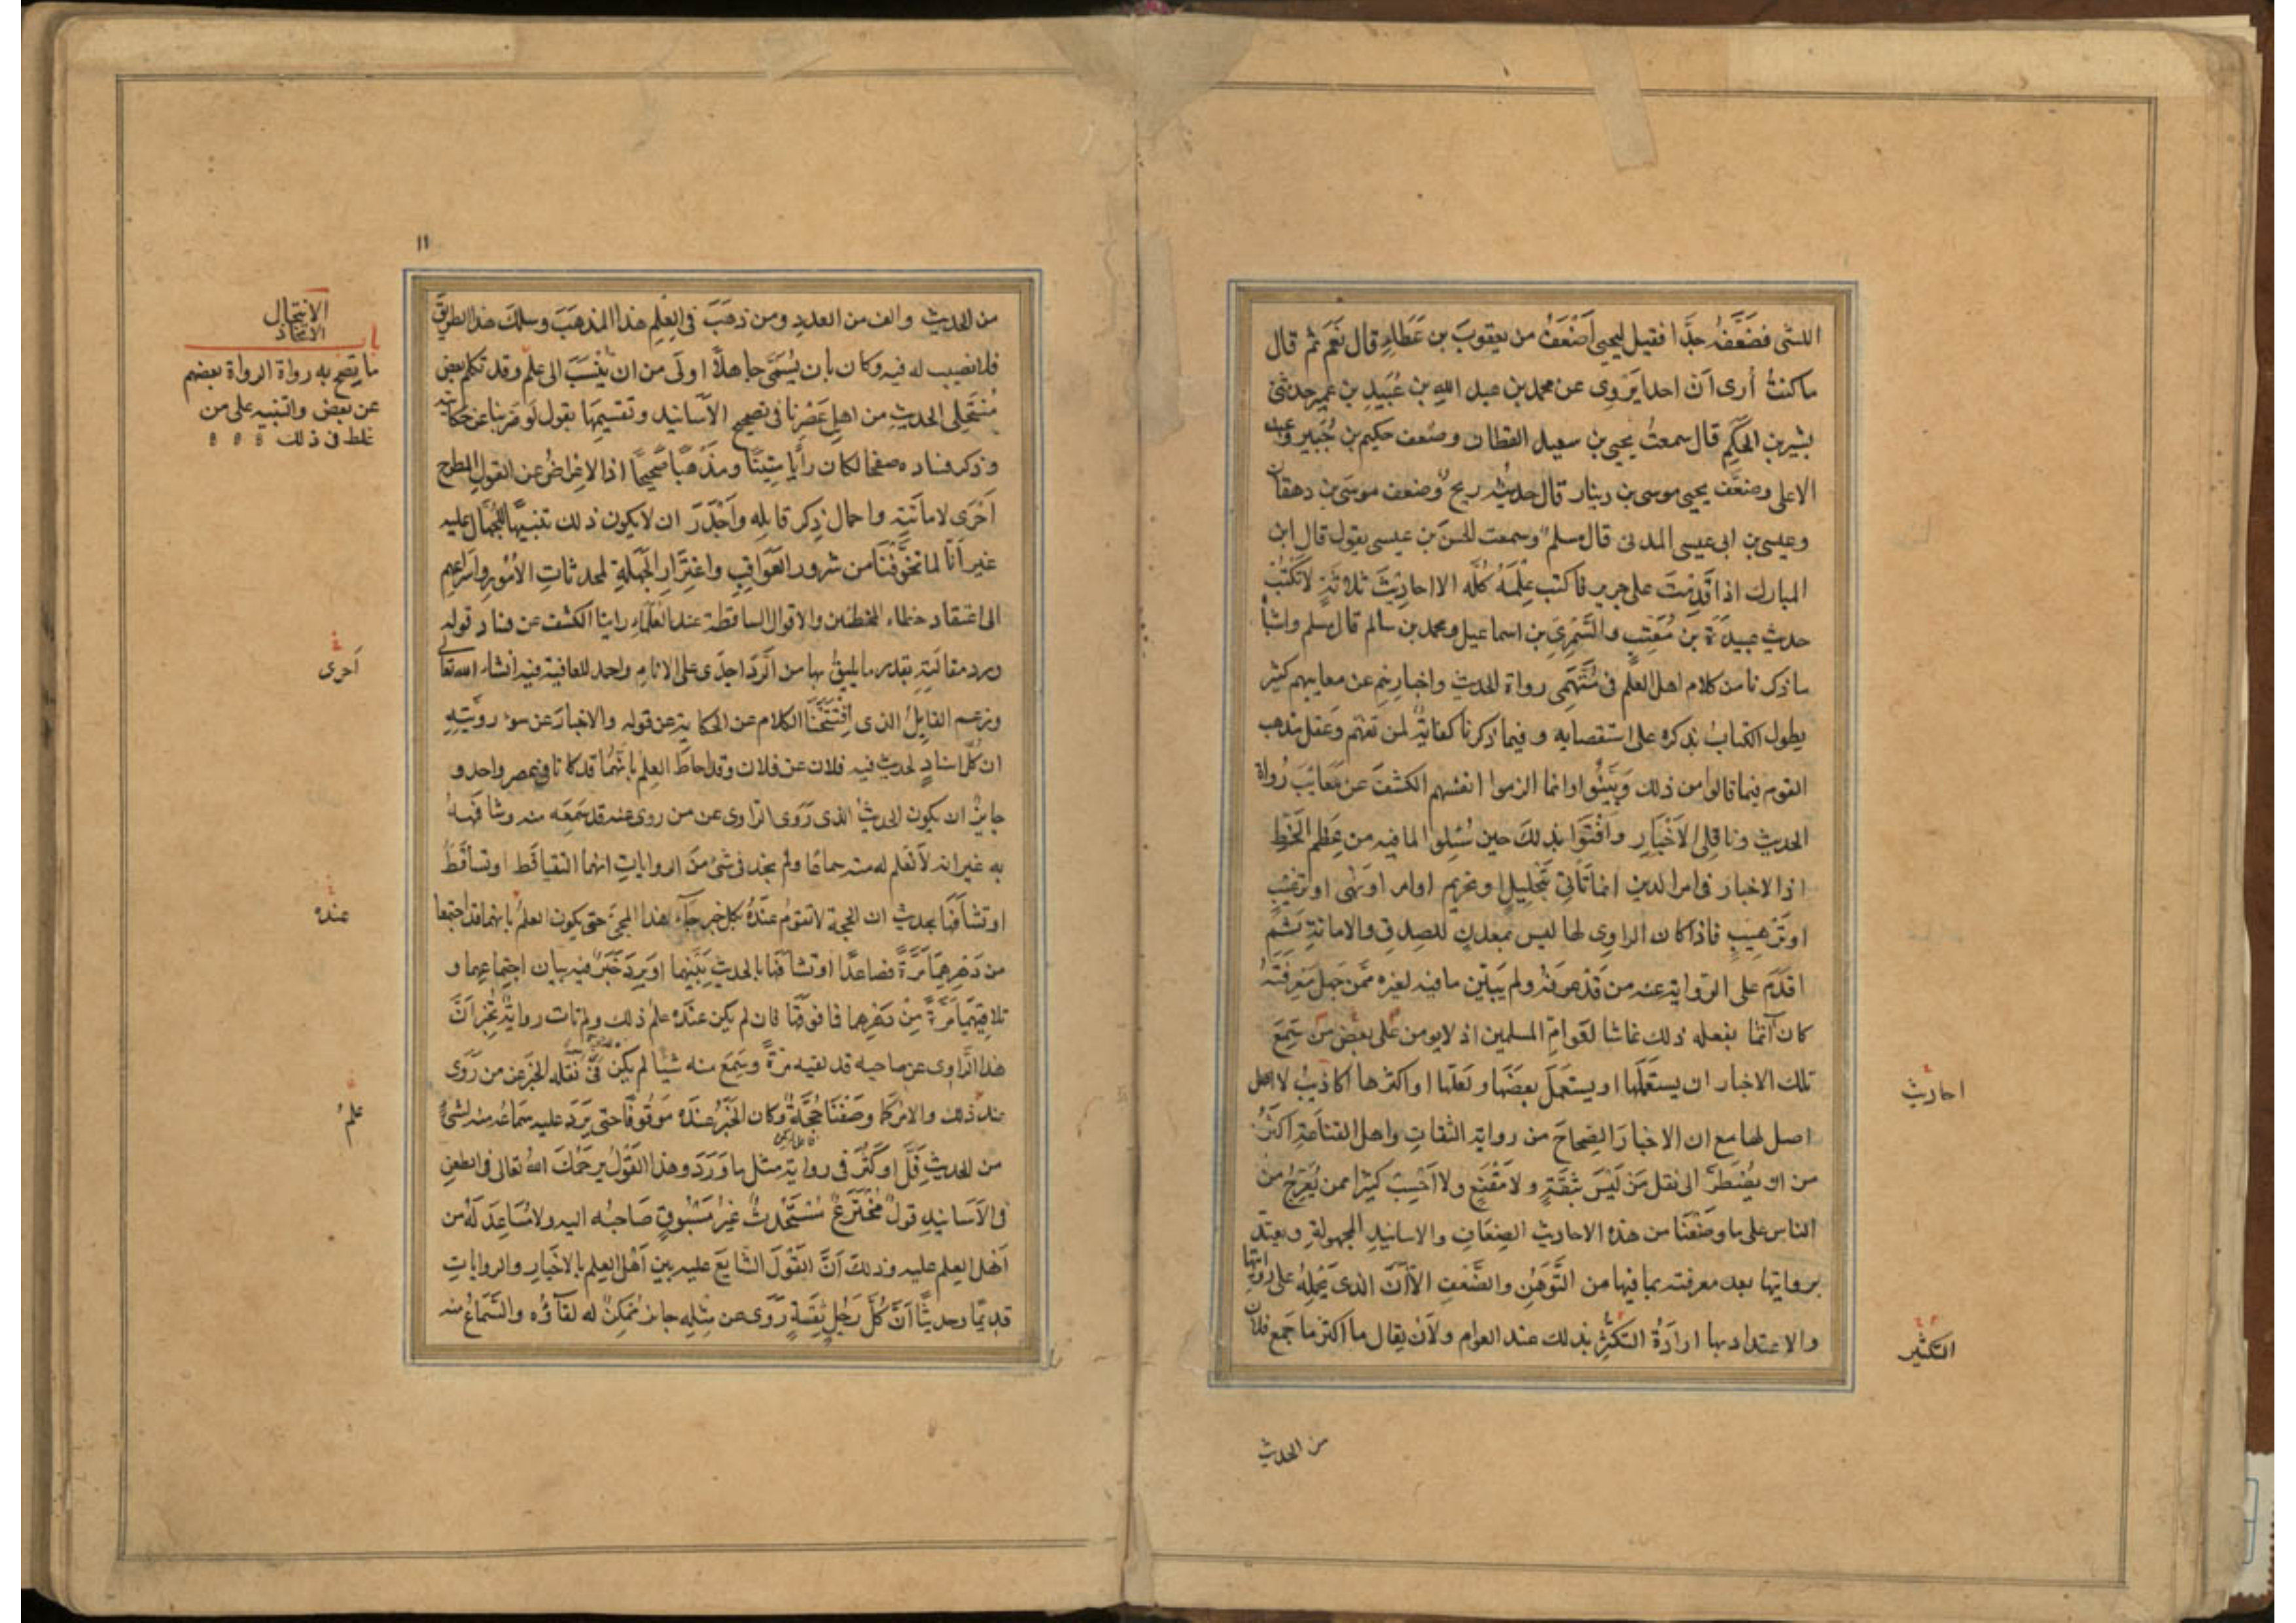 الليثى فضعفه جدا فقيل ليحيى اضعف من يعقوب بن عطاء قال نعم ثم قال
ما كنت أرى ان احدا يروى عن محمد بن عبد الله بن عبيد بن عمير حدثنى
بشر بن الحكم قال سمعت يحيى بن سعيد القطان وضعف حكيم بن جبير وعبد
الاعلى وضعف يحيى موسى بن دينار قال حديثه ريح وضعف موسى بن دهقان
وعيسى بن ابى عيسى المدنى قال مسلم وسمعت الحسن بن عيسى يقول قال ابن
المبارك اذا قدمت على جرير فاكتب علمه كله الا احاديث ثلاثة لا تكتب
حديث عبيدة بن معتب والسرى بن اسماعيل ومحمد بن سالم قال مسلم واشباه
ما ذكرنا من كلام اهل العلم فى متهمى رواة الحديث واخبارهم عن معايبهم كثير
يطول الكتاب بذكره على استقصايه وفيما ذكرنا كفاية لمن تفهم وعقل مذهب
القوم فيما قالوا من ذلك وبينوا وانما الزموا انفسهم الكشف عن معائب رواة
الحديث وناقلى الاخبار وافتوا بذلك حين سئلوا لما فيه من عظم الخطر
اذ الاخبار فى امر الدين انما تأتى بتحليل او تحريم او امر او نهى او ترغيب
او ترهيب فاذا كان الراوى لها ليس بمعدن للصدق والامانة ثم
اقدم على الرواية عنه من قد عرفه ولم يبين ما فيه لغيره ممن جهل معرفته
كان آثما بفعله ذلك غاشا لعوام المسلمين اذ لا يومن على بعض من سمع
تلك الاخبار ان يستعملها او يستعمل بعضها ولعلها او اكثرها اكاذيب لا اصل
اصل لها مع ان الاخبار الصحاح من رواية الثقات واهل القناعة اكثر
من ان يضطر الى نقل من ليس بثقة ولا مقنع ولا احسب كثيرا ممن يعرج من
الناس على ما وصفنا من هذه الاحاديث الضعاف والاسانيد المجهولة ويعتد
بروايتها بعد معرفته بما فيها من التوهن والضعف الا ان الذى يحمله على روايتها
والاعتداد بها ارادة التكثر بذلك عند العوام ولان يقال ما اكثر ما جمع فلان
احاديث
التكثير
من الحديث
١١
من الحديث والف من العدد ومن ذهب فى العلم هذا المذهب وسلك هذا الطريق
فلا نصيب له فيه وكان بان يسمى جاهلا اولى من ان ينسب الى علم وقد تكلم بعض
منتحلى الحديث من اهل عصرنا فى تصحيح الاسانيد وتقسيمها بقول لو ضربنا عن حكايته
وذكر فساده صفحا لكان رأيا متينا ومذهبا صحيحا اذ الاعراض عن القول المطرح
احرى لاماتته واخمال ذكر قايله واجدر ان لا يكون ذلك تنبيها للجهال عليه
غير انا لما تخوفنا من شرور العواقب واغترار الجهلة لمحدثات الامور واسراعهم
الى اعتقاد خطاء المخطئين والاقوال الساقطة عند العلماء راينا الكشف عن فساد قوله
ورد مقالته بقدر ما يليق بها من الرد اجدى على الانام واحمد للعاقبة فيه انشاء الله تعالى
وزعم القايل الذى افتتحنا الكلام عن الحكاية عن قوله والاخبار عن سوء رويته
ان كل اسناد لحديث فيه فلان عن فلان وقد احاط العلم بانهما قد كانا فى عصر واحد و
جايز ان يكون الحديث الذى روى الراوى عن من روى عنه قد سمعه منه وشافهه
به غير انه لا نعلم له منه سماعا ولم نجد فى شئ من الروايات انهما التقيا قط او تساقط
او تشافها بحديث ان الحجة لا تقوم عنده بكل خبر جاء هذا المجئ حتى يكون العلم بانهما قد اجتمعا
من دهرهما مرة فصاعدا او تشافها بالحديث بينهما او يرد خبر فيه بيان اجتماعهما و
تلاقيهما مرة من دهرهما فما فوقها فان لم يكن عنده علم ذلك ولم تات رواية تخبر ان
هذا الراوى عن صاحبه قد لقيه مرة وسمع منه شيئا لم يكن فى نقله الخبر عن من روى
عنه ذلك والامر كما وصفنا حجة وكان الخبر عنده موقوفا حتى يرد عليه سماعه منه لشئ
من الحديث قل او كثر فى رواية مثل ما ورد وهذا القول يرحمك الله تعالى فى الطعن
فى الاسانيد قول مخترع مستحدث غير مسبوق صاحبه اليه ولا مساعد له من
اهل العلم عليه وذلك ان القول الشايع عليه بين اهل العلم بالاخبار والروايات
قديما وحديثا ان كل رجل ثقة روى عن مثله جائز ممكن له لقاؤه والسماع منه
الانتحال
باب
ما تصح به رواة الرواة بعضهم
عن بعض والتنبيه على من
غلط فى ذلك
احرى
عنده
علم